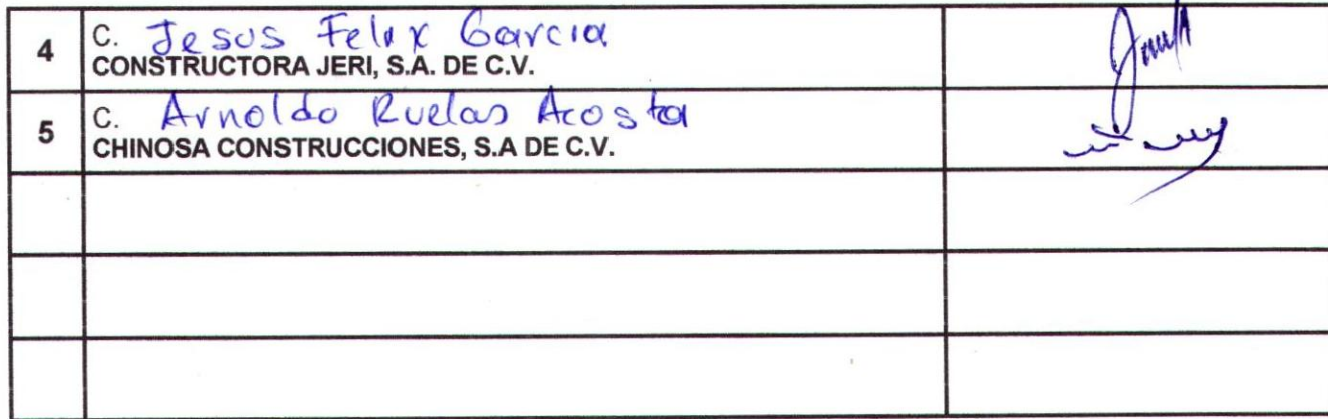 4
C. Jesus Felix Garcia
CONSTRUCTORA JERI, S.A. DE C.V.
5
C. Arnoldo Ruelas Acosta
CHINOSA CONSTRUCCIONES, S.A DE C.V.